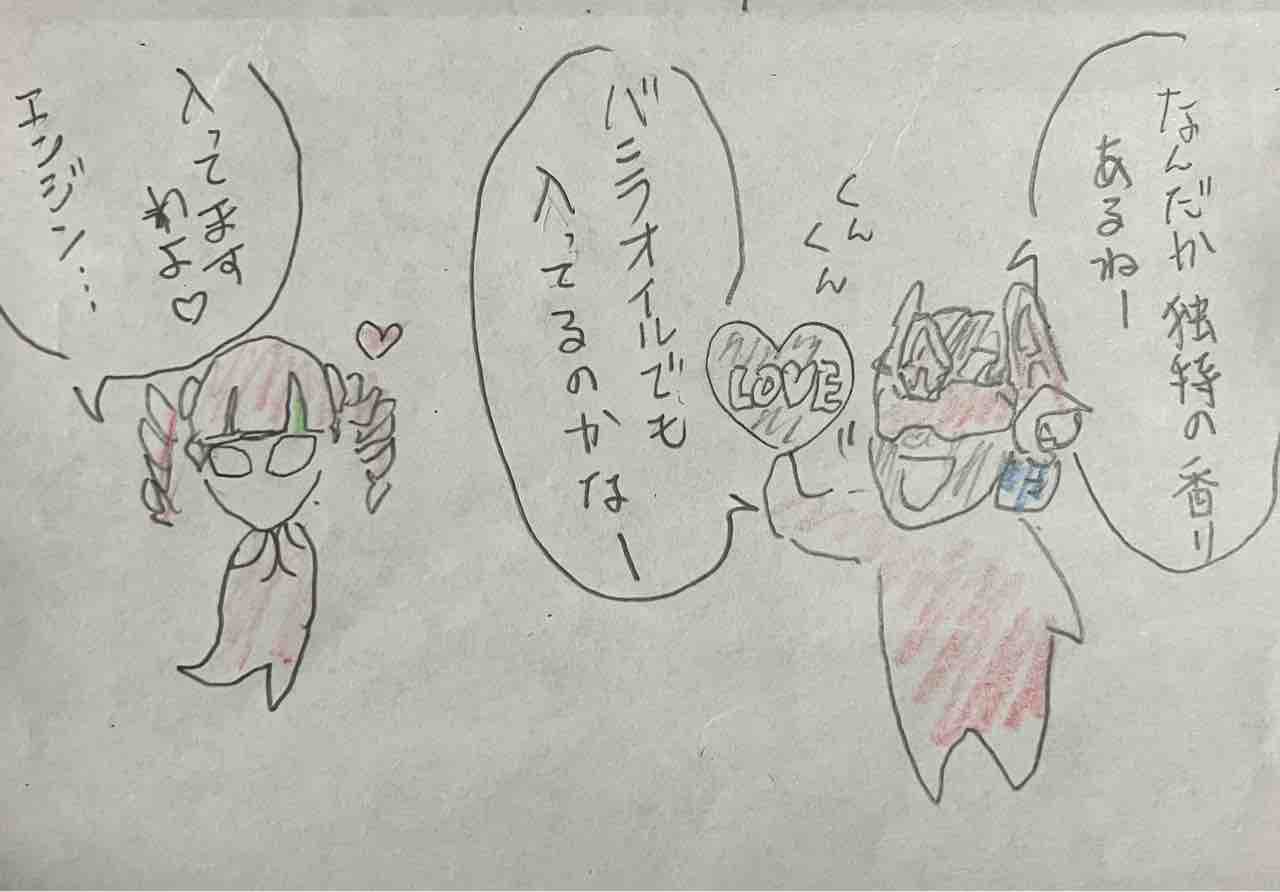 なんだか独特の香り
あるねー
くん
くん
LOVE
バニラオイルでも
入ってるのかなー
入ってます
わよ♡
エンジン…